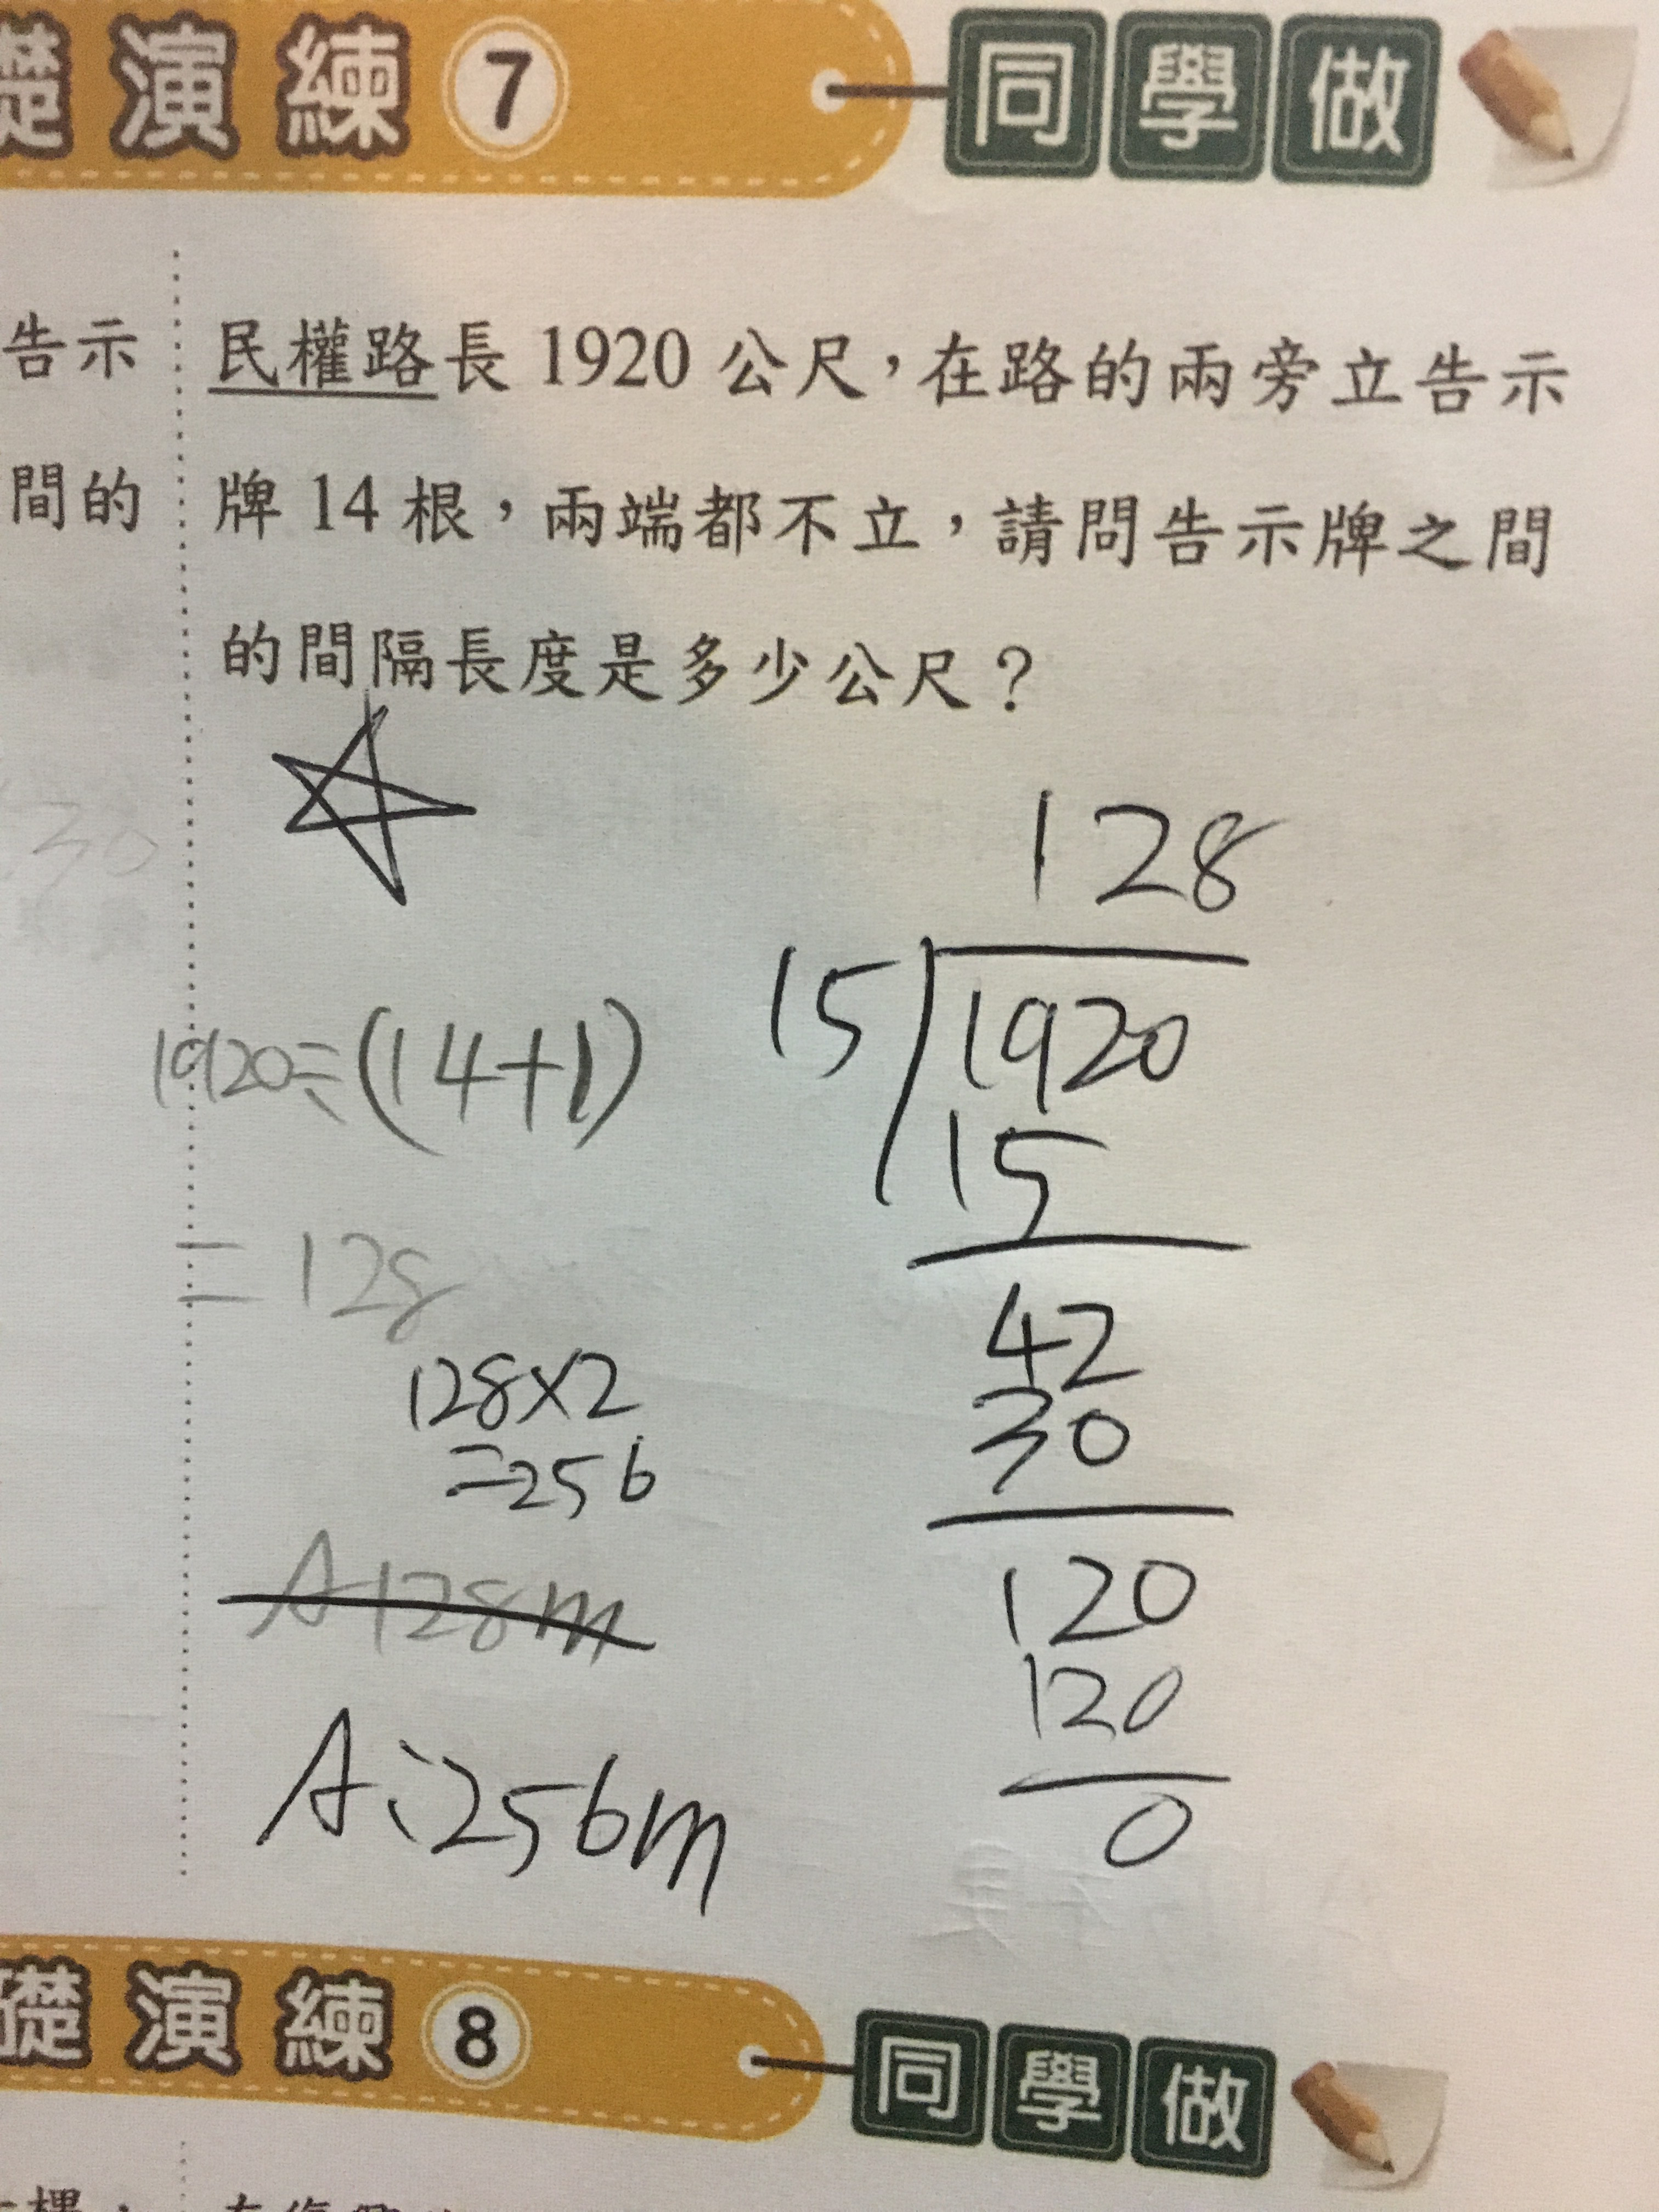 礎演練7 同學做
告示
間的
民權路長1920公尺，在路的兩旁立告示
牌14根，兩端都不立，請問告示牌之間
的間隔長度是多少公尺？
1920÷(14+1)
=128
128×2
=256
A128m
A:256m
128
15 1920
15
42
30
120
120
0
礎演練8 同學做